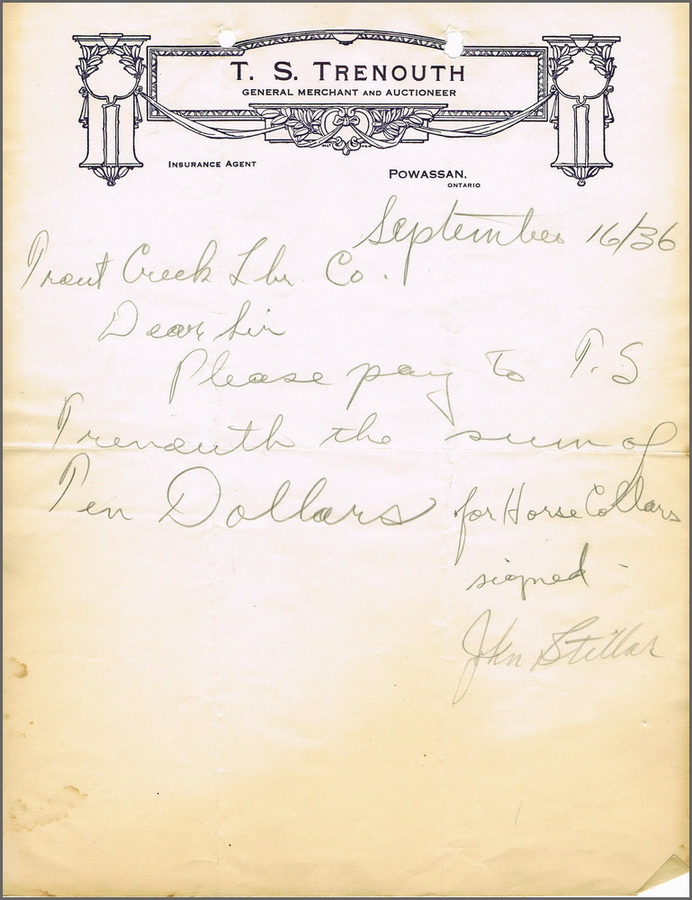 T. S. TRENOUTH
GENERAL MERCHANT AND AUCTIONEER
INSURANCE AGENT
POWASSAN,
ONTARIO
September 16/36
Trout Creek Lbr. Co.
Dear Sir
Please pay to T.S
Trenouth the sum of
Ten Dollars for Horse Collars
signed -
John Stillar